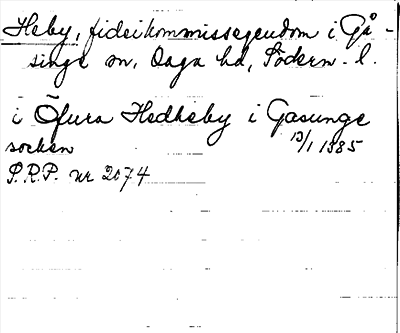 Heby, fideikommissegendom i Gå-
singe sn, Daga hd, Södern. l.
i Öfura Hedheby i Gasunge
socken 13/1 1385
S.R.P. nr 2074